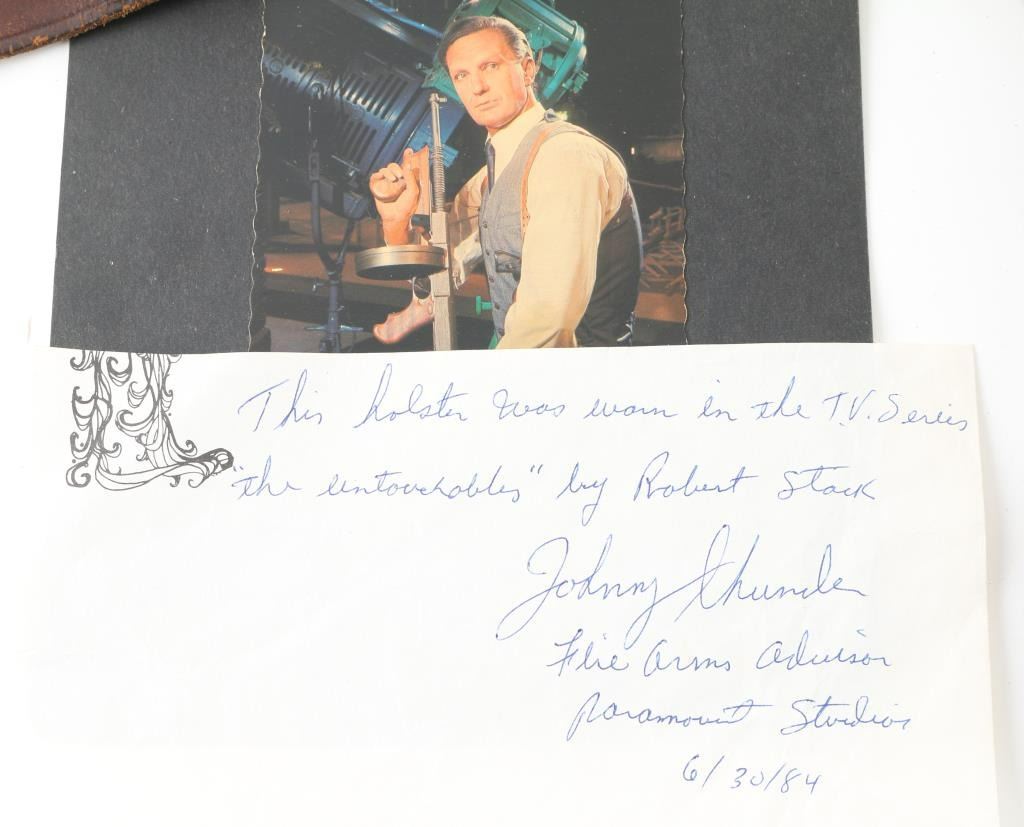 This holster was worn in the T.V. Series
"the untouchables" by Robert Stack
Johnny Thunder
Fire Arms Advisor
Paramount Studios
6/30/84